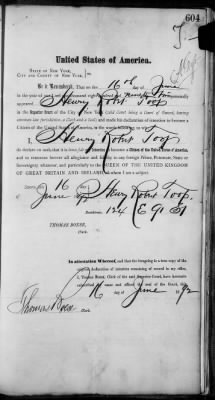 604
United States of America.
STATE OF NEW YORK,
CITY AND COUNTY OF NEW YORK, } ss.
Be it Remembered, That on the 16 day of June
in the year of our Lord one thousand eight hundred and ninety two personally
appeared Henry Robt Toop
in the Superior Court of the City of New York (said Court being a Court of Record, having
common law jurisdiction, a Clerk and a Seal) and made his declaration of intention to become a
Citizen of the United States of America, in the words following, to wit:
I, Henry Robt Toop
do declare on oath, that it is bona fide my intention to become a Citizen of the United States of America,
and to renounce forever all allegiance and fidelity to any foreign Prince, Potentate, State or
Sovereignty whatever, and particularly to the QUEEN OF THE UNITED KINGDOM
OF GREAT BRITAIN AND IRELAND of whom I am a subject
Sworn this 16
June 92 Henry Robt Toop
Residence, 124 E 91 St
THOMAS BOESE,
Clerk.
In attestation Whereof, and that the foregoing is a true copy of the
original declaration of intention remaining of record in my office,
I, Thomas Boese, Clerk of the said Superior Court, have hereunto
subscribed my name and affixed the seal of the Court, this
16 day of June 1892
Thomas Boese
Clerk.